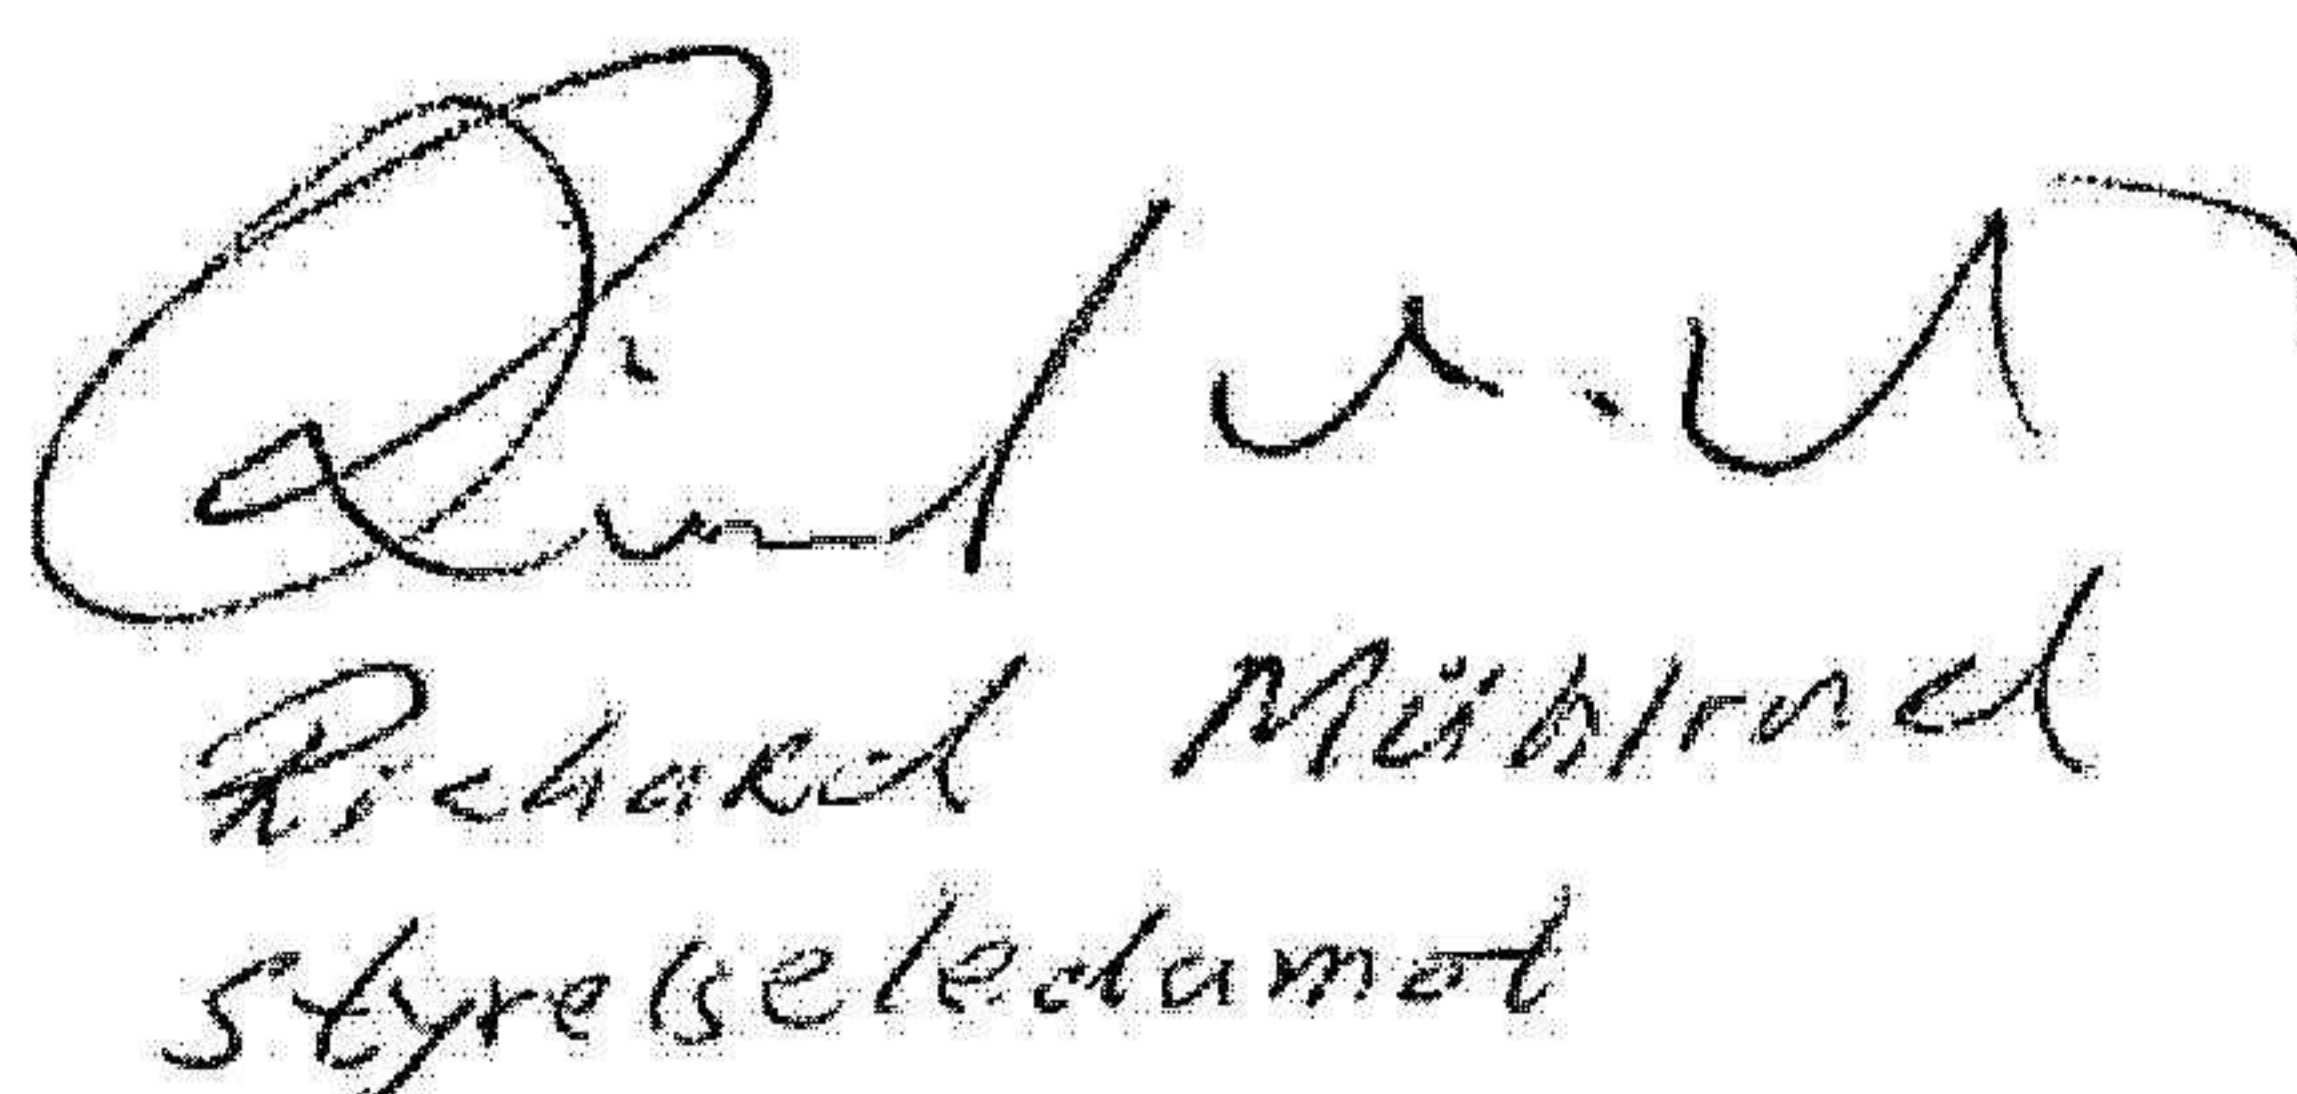 Richard Mühlrad
Styrelseledamot